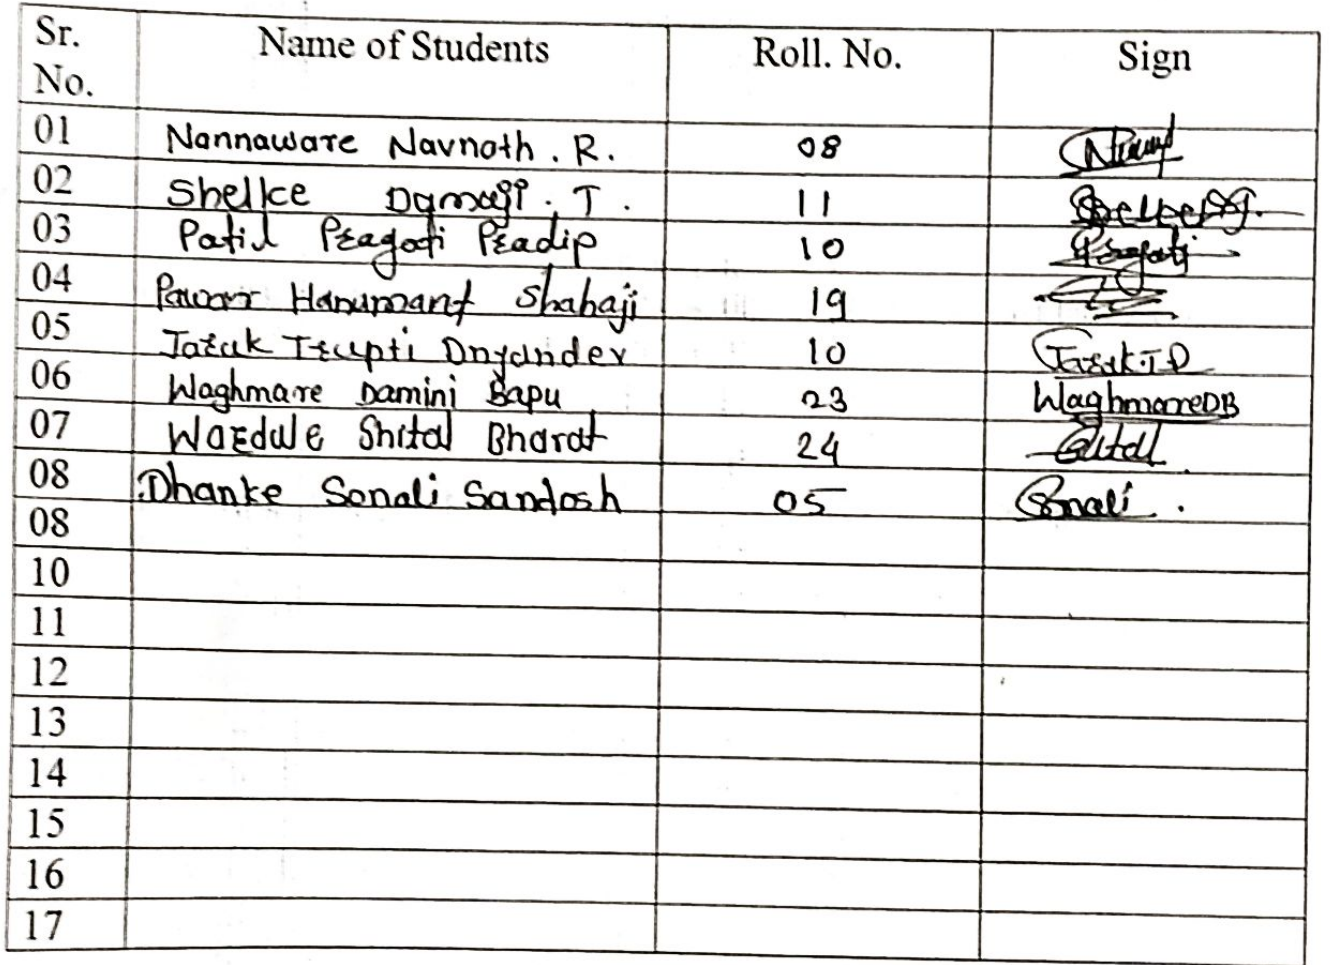 Sr. No. Name of Students Roll. No. Sign
01 Nannaware Navnath . R. 08
02 Shelke Damaji . T . 11
03 Patil Pragati Pradip 10 Pragati
04 Pawar Hanumant Shahaji 19
05 Jarak Trupti Dnyandev 10 Jarak T D
06 Waghmare Damini Bapu 23 WaghmareDB
07 Wardule Shital Bharat 24 Shital
08 Dhanke Sonali Sandosh 05 Sonali .
08
10
11
12
13
14
15
16
17